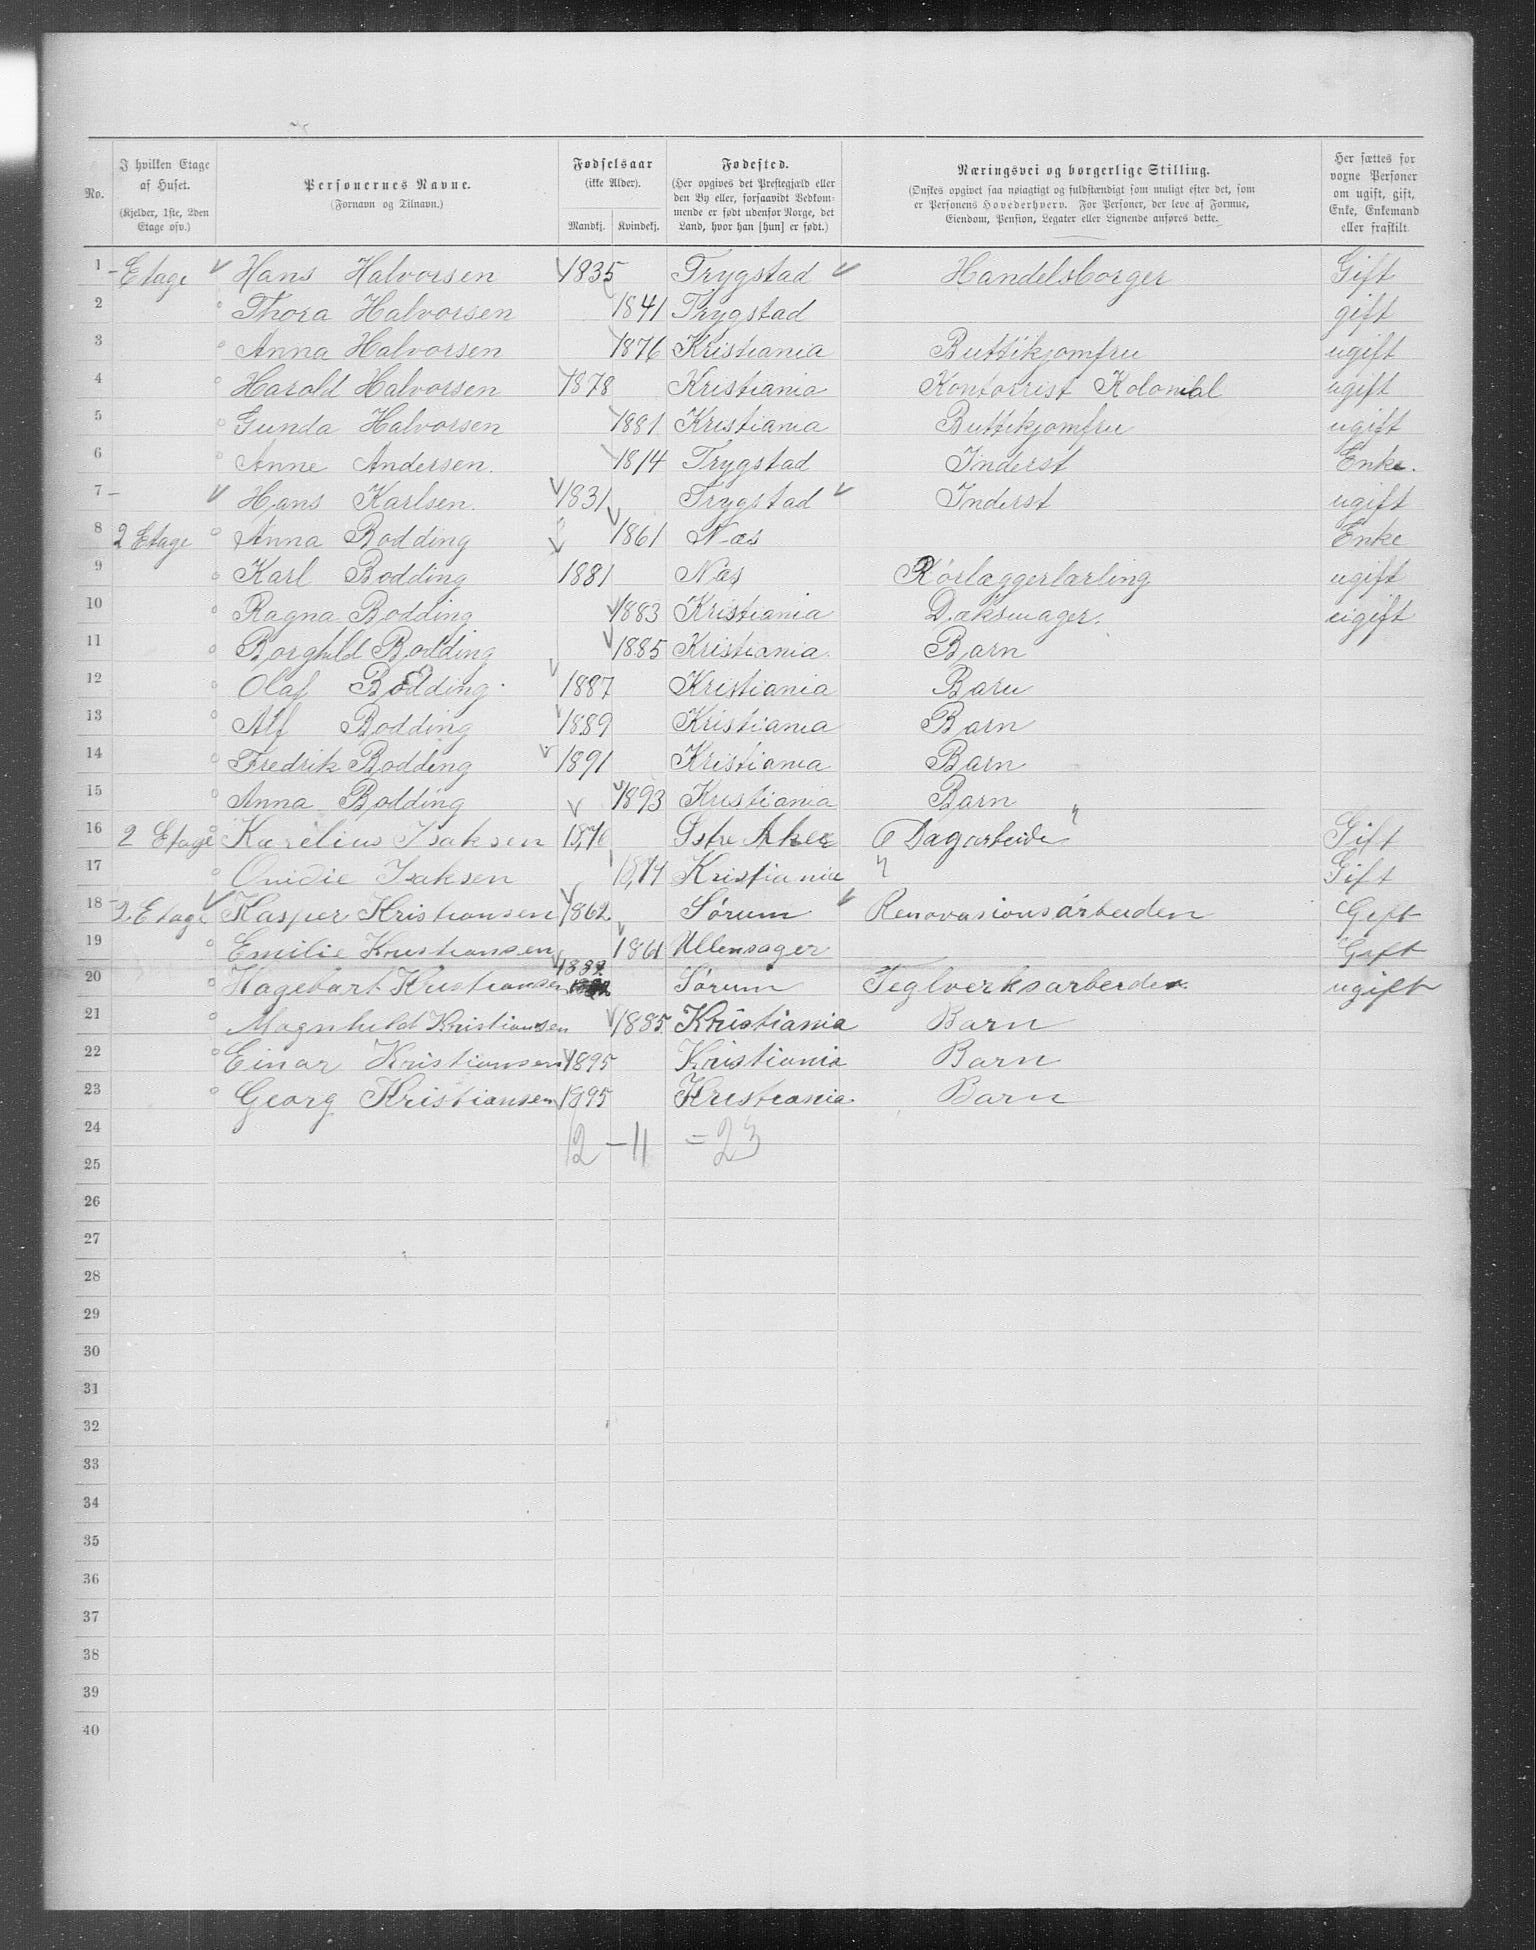 No. | I hvilken Etage af Huset. (Kjelder, 1ste, 2den Etage osv.) | Personernes Navne. (Fornavn og Tilnavn.) | Fødselsaar (ikke Alder). Mandkj. Kvindekj. | Fødested. (Her opgives det Prestegjæld eller den By eller, forsaavidt Vedkommende er født udenfor Norge, det Land, hvor han [hun] er født.) | Næringsvei og borgerlige Stilling. (Ønskes opgivet saa nøiagtigt og fuldstændigt som muligt efter det, som er Personens Hovederhverv. For Personer, der leve af Formue, Eiendom, Pension, Legater eller Lignende anføres dette.) | Her sættes for voxne Personer om ugift, gift, Enke, Enkemand eller fraskilt.
1 – Etage Hans Halvorsen 1835 Trygstad Handelsborger Gift
2 Thora Halvorsen 1841 Trygstad gift
3 Anna Halvorsen 1876 Kristiania Buttikjomfru ugift
4 Harald Halvorsen 1878 Kristiania Kontorist Kolonial ugift
5 Gunda Halvorsen 1881 Kristiania Buttikjomfru ugift
6 Anne Andersen. 1814 Trygstad Inderst Enke.
7 – Hans Karlsen. 1831 Trygstad Inderst ugift
8 2 Etage Anna Bodding 1861 Næs Enke
9 Karl Bodding 1881 Næs Rörlæggerlarling ugift
10 Ragna Bodding 1883 Kristiania ugift
11 Borghild Bodding 1885 Kristiania. Barn
12 Olaf Bodding. 1887 Kristiania Barn
13 Alf Bodding 1889 Kristiania Barn
14 Fredrik Bodding 1891 Kristiania Barn
15 Anna Bodding 1893 Kristiania Barn
16 2 Etage Karelius Isaksen 1870 Østre Aker Dagarbeide Gift
17 Isaksen 1874 Kristiania Gift
18 2 Etage Kasper Kristiansen 1862 Sørum Renovasionsarbeiden Gift
19 Emilie Kristiansen 1861 Ullensager Gift
20 Hagebart Kristiansen 1882 Sørum Teglverksarbeider ugift
21 Magnhild Kristiansen 1885 Kristiania Barn
22 Einar Kristiansen 1895 Kristiania Barn
23 Georg Kristiansen 1895 Kristiania Barn
24
12 – 11 = 23
25
26
27
28
29
30
31
32
33
34
35
36
37
38
39
40